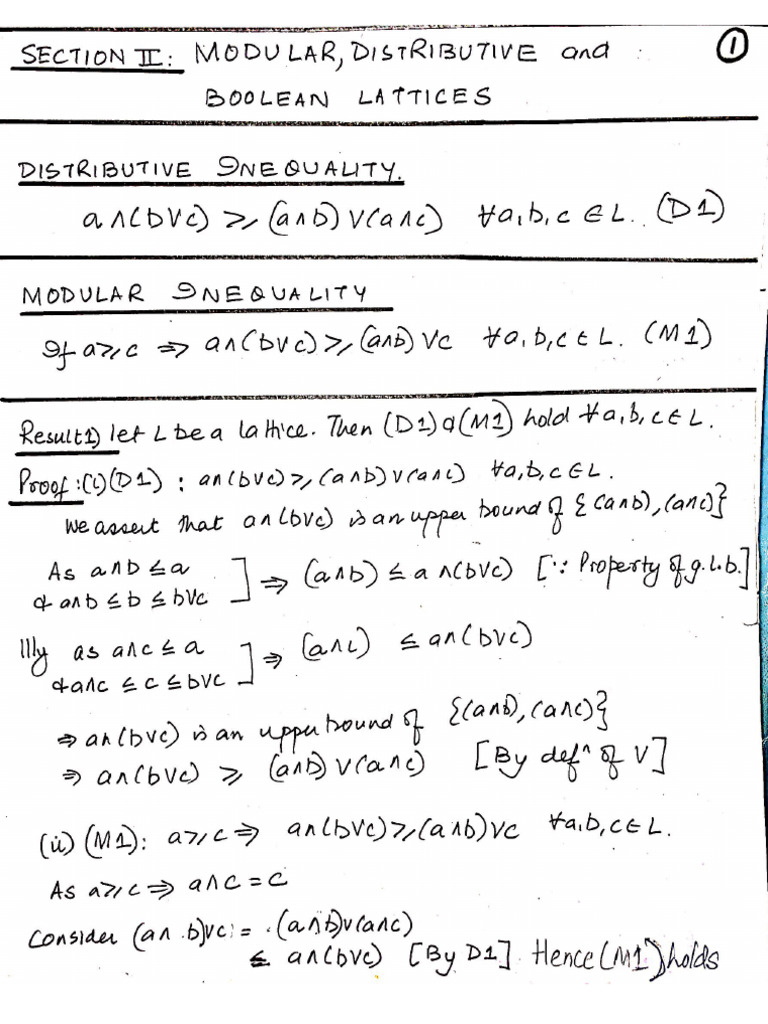 SECTION II: MODULAR, DISTRIBUTIVE and ①
BOOLEAN LATTICES
DISTRIBUTIVE INEQUALITY.
a∧(b∨c) ≥ (a∧b) ∨(a∧c) ∀a,b,c ∈ L. (D1)
MODULAR INEQUALITY
If a≥c ⇒ a∧(b∨c) ≥ (a∧b) ∨c ∀a,b,c ∈ L. (M1)
Result 1) let L be a lattice. Then (D1) & (M1) hold ∀a,b,c ∈ L.
Proof: (i) (D1) : a∧(b∨c) ≥ (a∧b) ∨(a∧c) ∀a,b,c ∈ L.
We assert that a∧(b∨c) is an upper bound of {(a∧b), (a∧c)}
As a∧b ≤ a
& a∧b ≤ b ≤ b∨c ] ⇒ (a∧b) ≤ a ∧(b∨c) [∵ Property of g.l.b.]
Illly as a∧c ≤ a
& a∧c ≤ c ≤ b∨c ] ⇒ (a∧c) ≤ a∧(b∨c)
⇒ a∧(b∨c) is an upper bound of {(a∧b), (a∧c)}
⇒ a∧(b∨c) ≥ (a∧b) ∨(a∧c) [By defⁿ of ∨]
(ii) (M1): a≥c ⇒ a∧(b∨c) ≥ (a∧b) ∨c ∀a,b,c ∈ L.
As a≥c ⇒ a∧c = c
Consider (a∧b)∨c = (a∧b)∨(a∧c)
≤ a∧(b∨c) [By D1] Hence (M1) holds